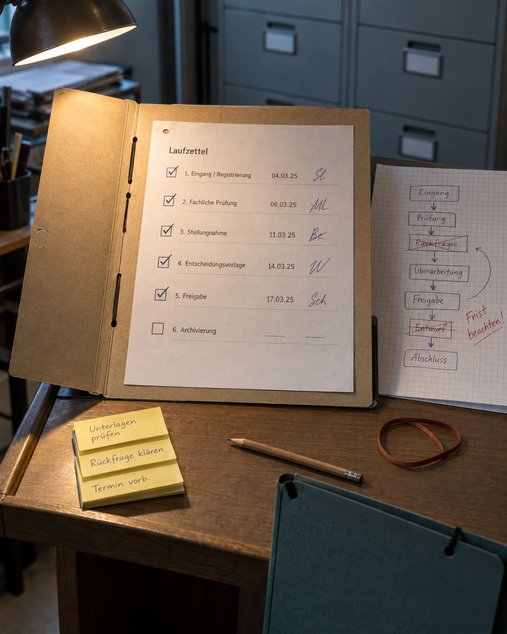 Laufzettel
1. Eingang / Registrierung 04.03.25
2. Fachliche Prüfung 06.03.25
3. Stellungnahme 11.03.25
4. Entscheidungsvorlage 14.03.25
5. Freigabe 17.03.25 Sch
6. Archivierung
Eingang
Prüfung
Rückfragee
Überarbeitung
Freigabe
Entwurf
Abschluss
Frist
beachten!
Unterlagen
prüfen
Rückfrage klären
Termin vorb.